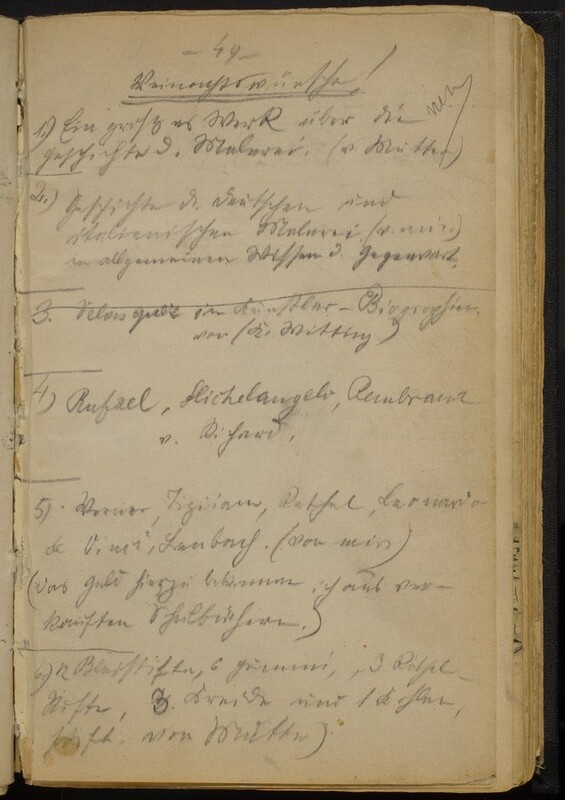 - 49 -
Weinachtswünsche!
1.) Ein großes Werk über die
Geschichte d. Malerei. (v. Mutter)
2.) Geschichte d. deutschen und
italienischen Malerei (v. mir.)
im allgemeinen Wissen d. Gegenwart.
3. Velasquez im Künstler - Biographien.
von (K. Witting)
4) Rafael, Michelangelo, Rembrant
v. Richard.
5) Werner, Tizian, Rethel, Leonardo
da Vinci, Lenbach. (von mir)
(das Geld hierzu bekomme ich aus ver-
kauften Schulbüchern.)
6) 12 Bleistifte, 6 Gummi, 3 Rötel-
stifte, 3. Kreide und 1 Kohlen,
von Mutter).